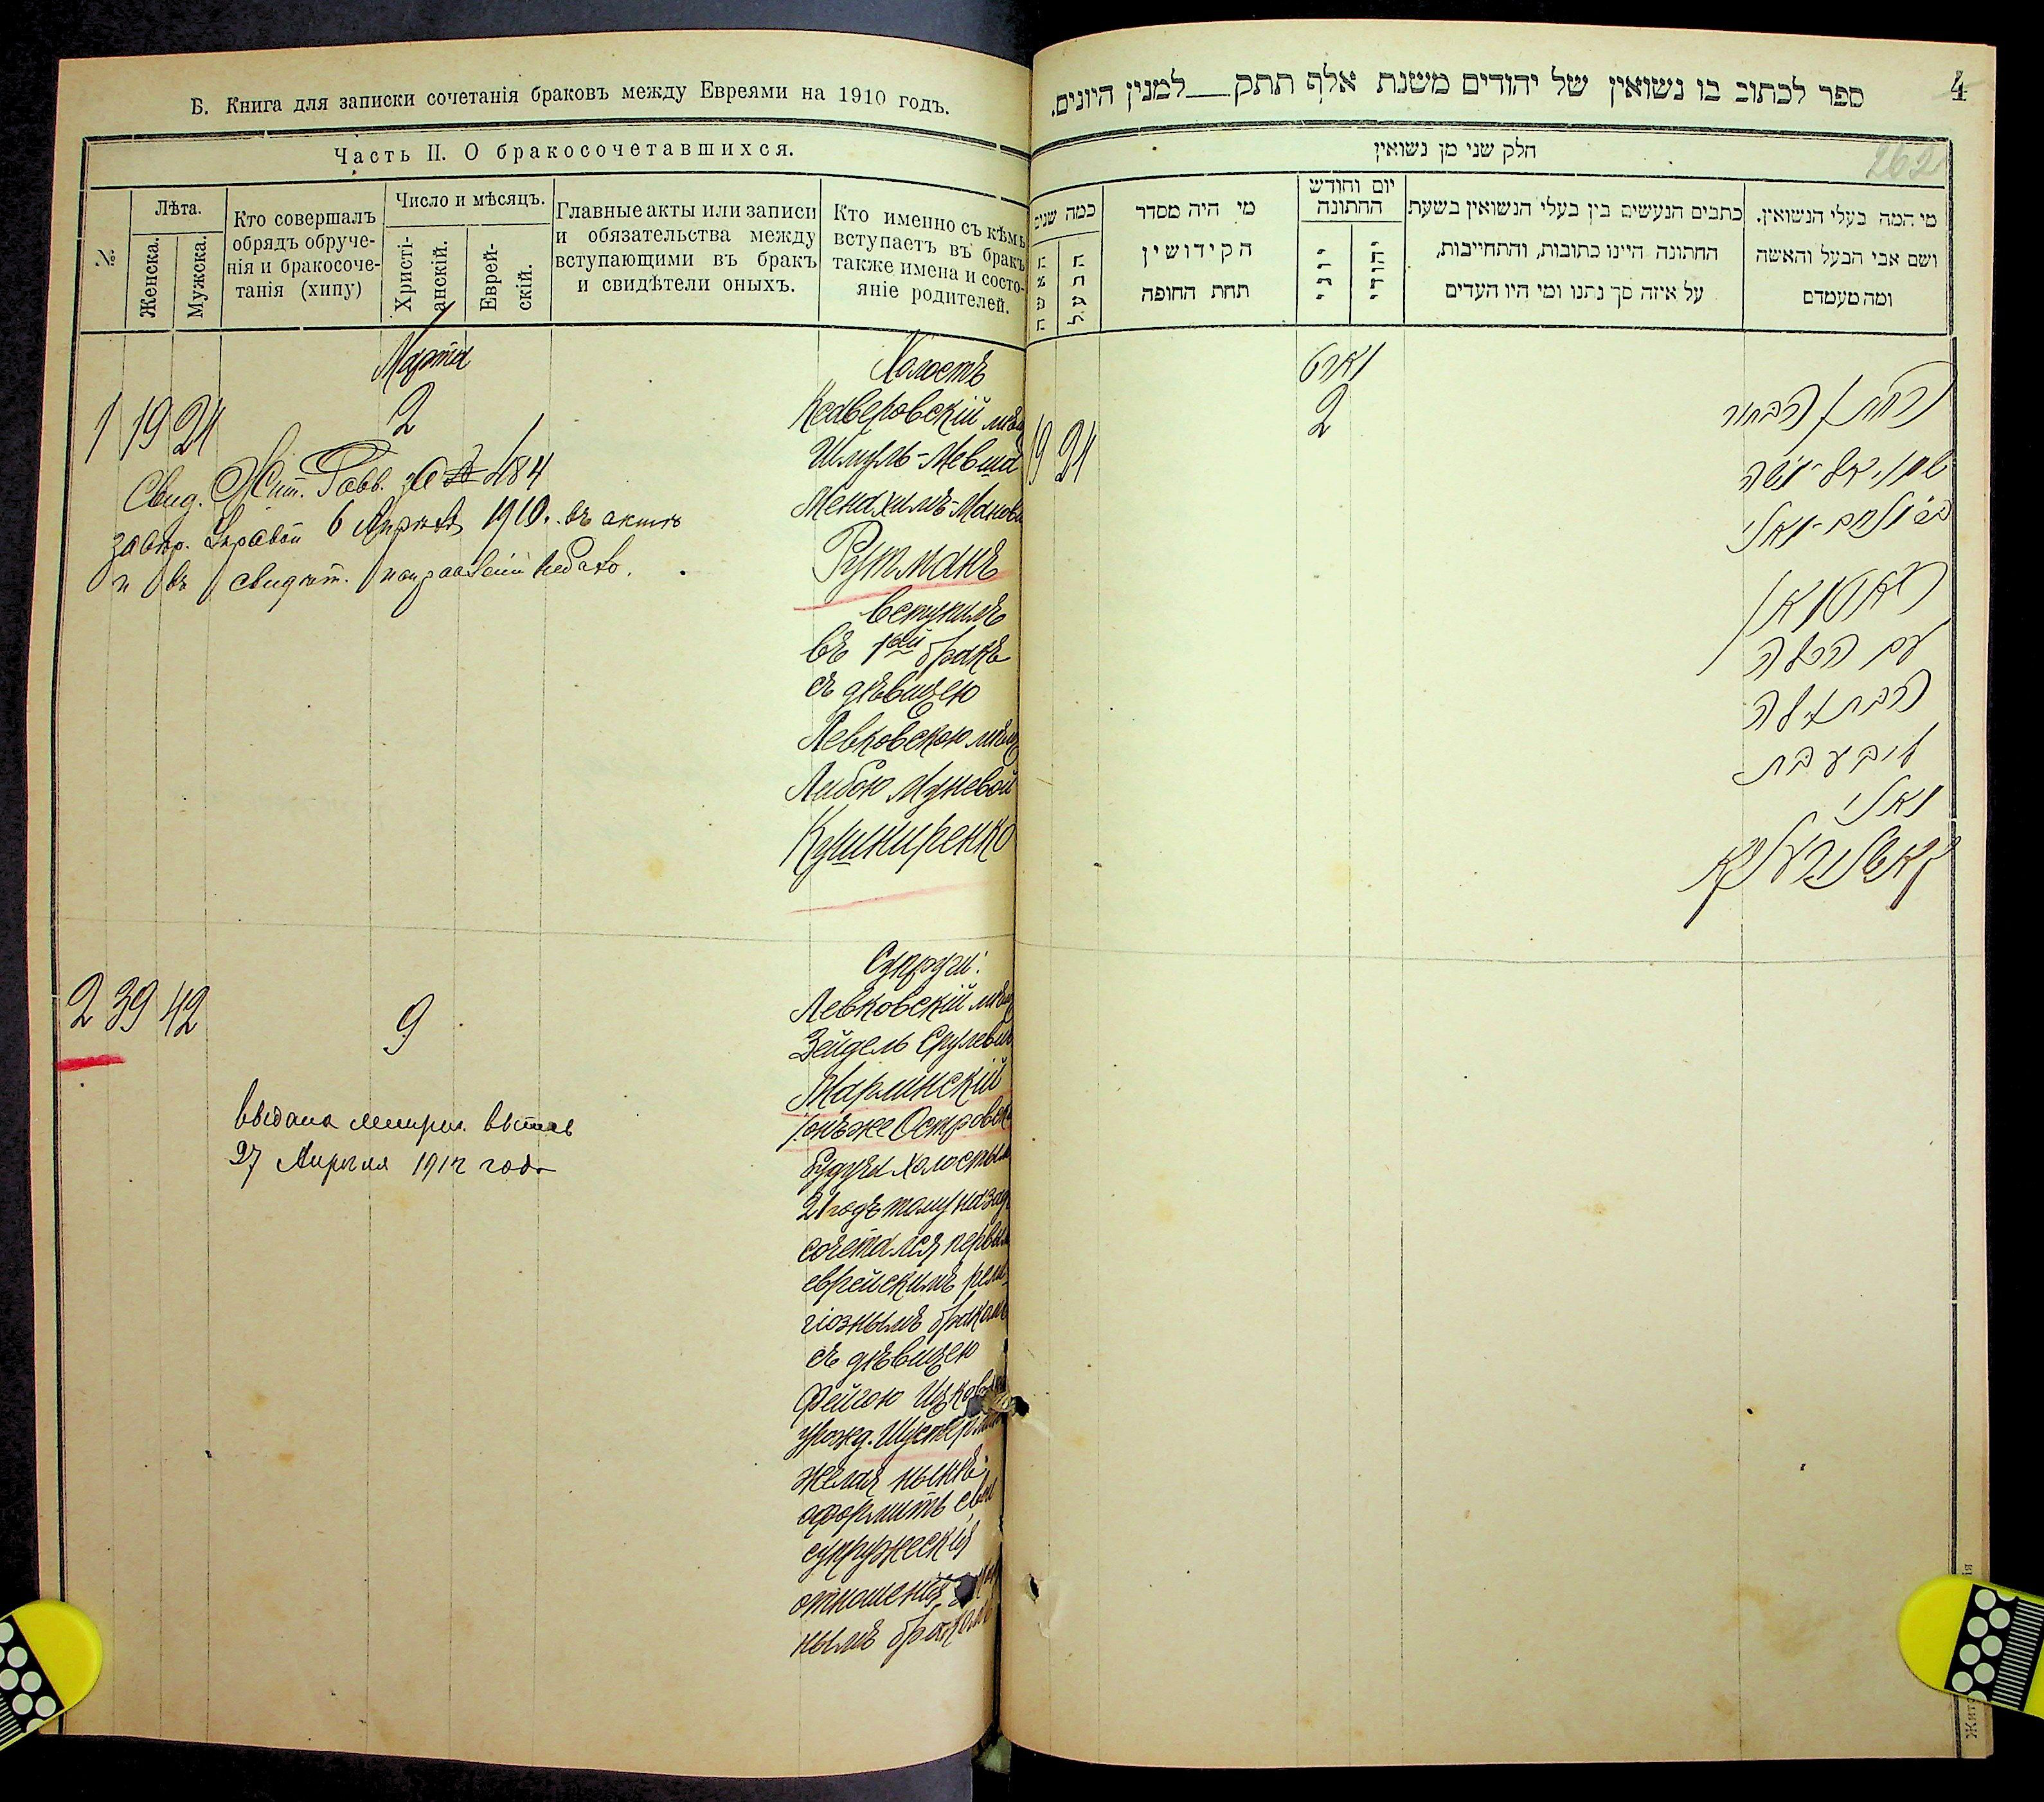 Б. Книга для записки сочетанія браковъ между Евреями на 1910 годъ.
Часть II. О бракосочетавшихся.
№
Лѣта.
Женска.
Мужска.
Кто совершалъ
обрядъ обруче-
нія и бракосоче-
танія (хипу)
Число и мѣсяцъ.
Христі-
анскій.
Еврей-
скій.
Главные акты или записи
и обязательства между
вступающими въ бракъ
и свидѣтели оныхъ.
Кто именно съ кѣмъ
вступаетъ въ бракъ
также имена и состо-
яніе родителей.
Марта
1 19 21
2
Свид. Жит. Равв. за № 484
6 Апрѣля 1910. въ актѣ
и въ свидѣт.
Холостъ
мѣщ
Шмуль-Мевша
Менахимъ-Манов
Рутманъ
вступилъ
въ 1ый бракъ
съ дѣвицею
Левковскою мѣщ
Либою Муневой
Кушниренко
2 39 42
9
выдана метрич. выпись
27 Апрѣля 1912 года
Супруги:
Левковскій мѣщ
Зейдель Срулевич
Марлинскій
онъ же Островск
будучи холостым
21 годъ тому назад
сочетался первым
еврейскимъ рели-
гіознымъ бракомъ
съ дѣвицею
Фейгою Ицков
урожд. Шустерман
желая нынѣ
оформить свои
супружескія
отношенія
нымъ бракомъ
4
262
ספר לכתוב בו נשואין של יהודים משנת אלף תתק__למנין היונים.
חלק שני מן נשואין
כמה שנים
האשה
הבעל
מי היה מסדר
הקידושין
תחת החופה
יום וחודש
החתונה
יוני
יהודי
כתבים הנעשים בין בעלי הנשואין בשעת
החתונה היינו כתובות, והתחייבות,
על איזה סך נתנו ומי היו העדים
מי המה בעלי הנשואין.
ושם אבי הבעל והאשה
ומה מעמדם
מארט
19 21
2
החתן הבחור
עם הכלה
הבתולה
ליבע בת
מאני